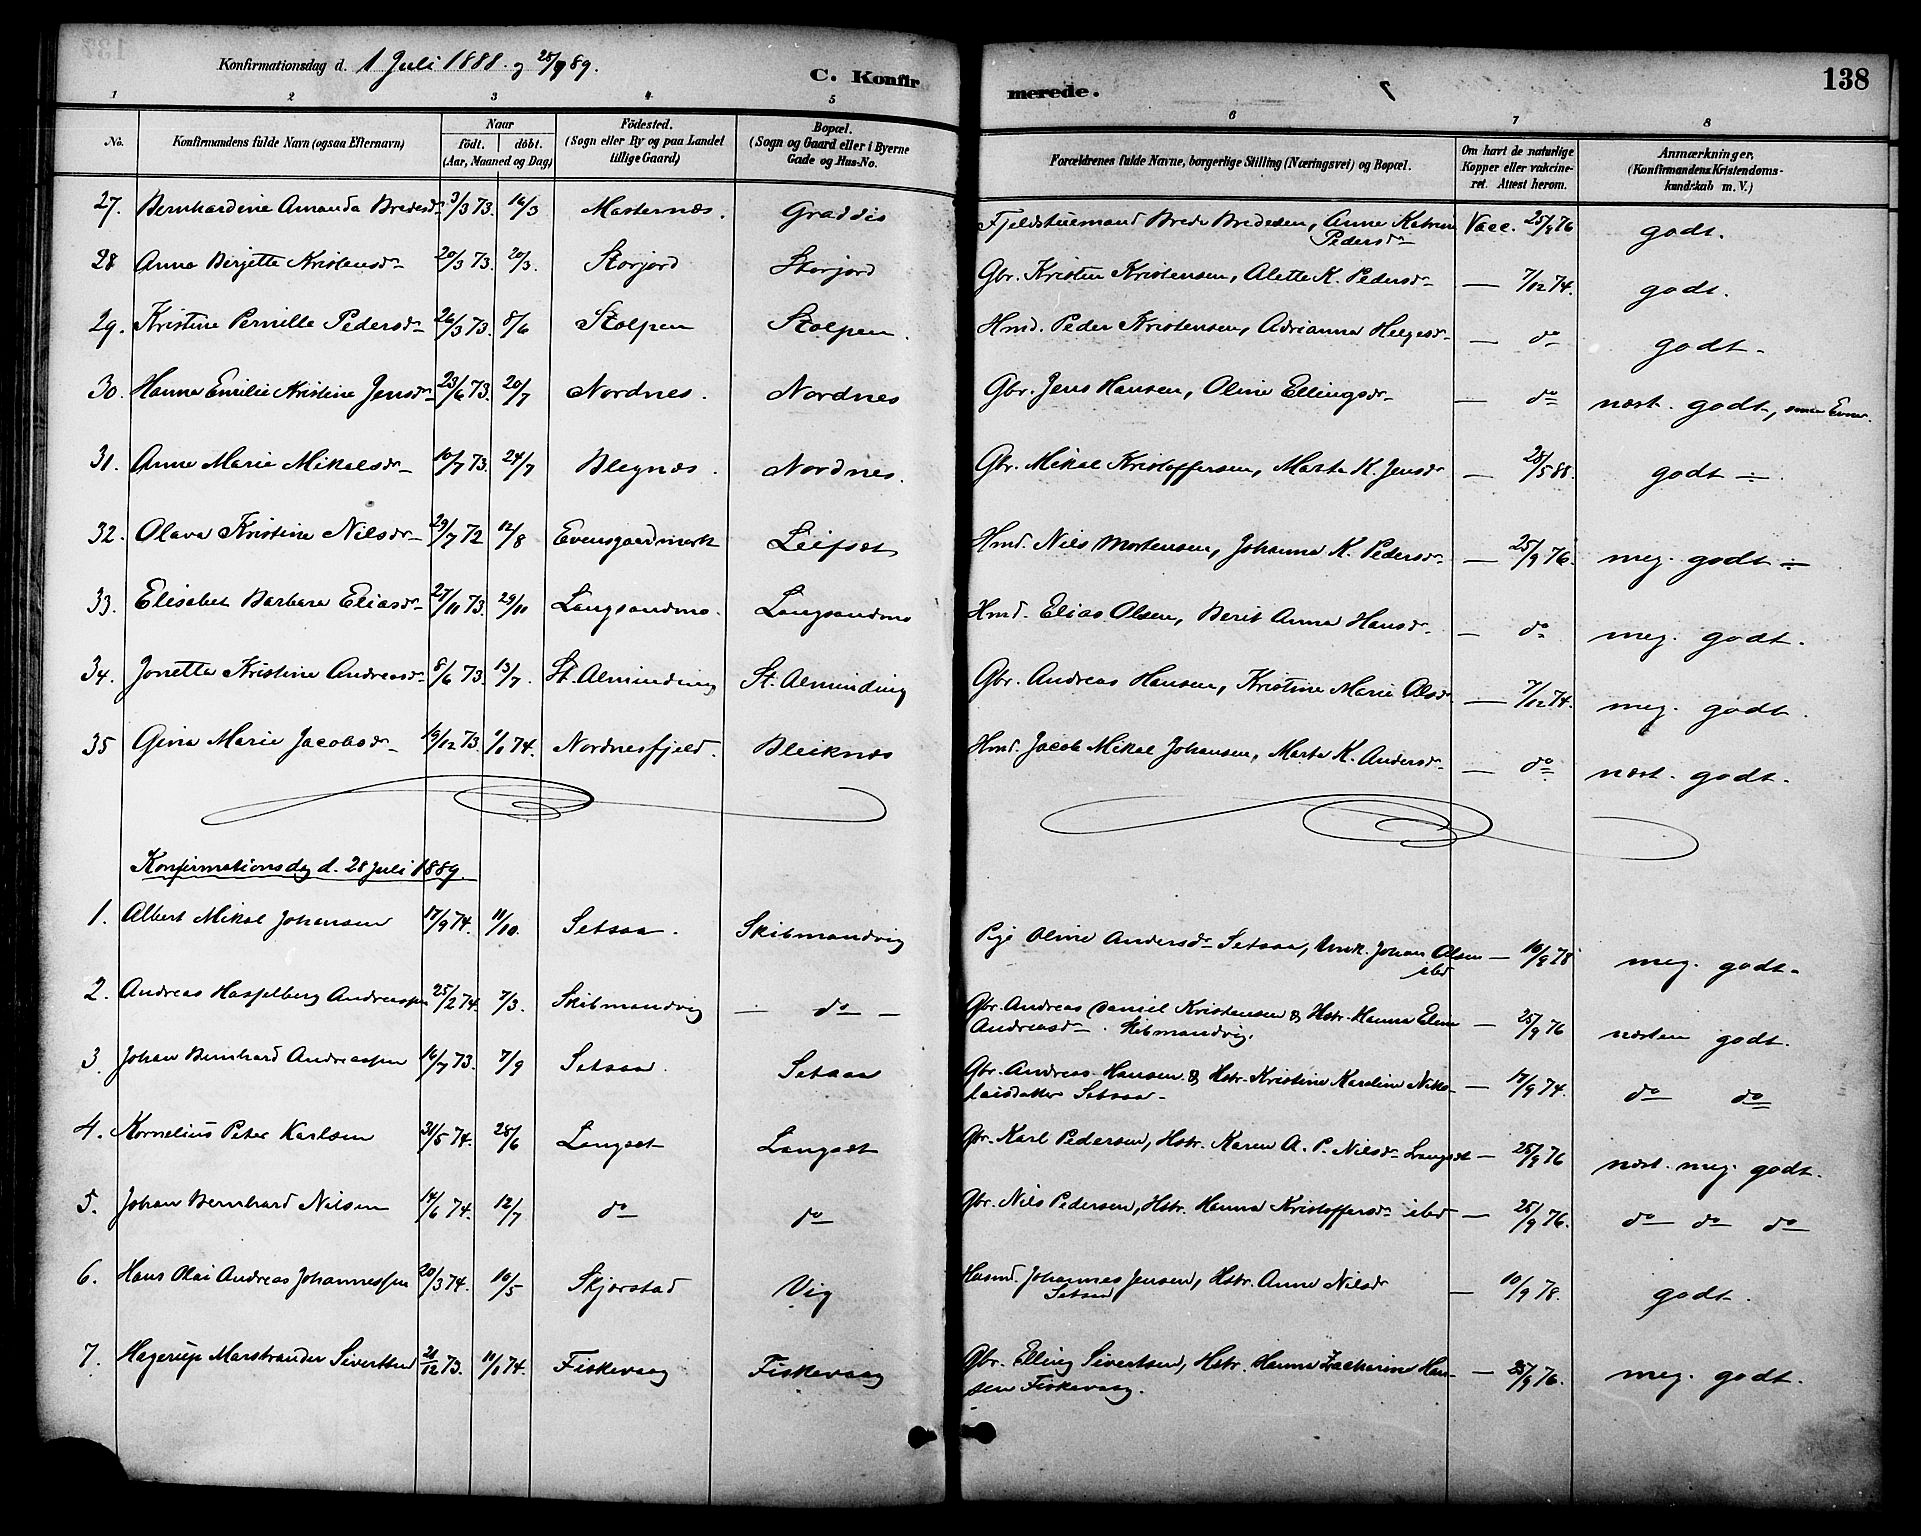 Konfirmationsdag d. 1 Juli 1888. og 28/7 89.
C. Konfir
merede.
138
1 2 3 4 5 6 7 8
No. Konfirmandens fulde Navn (ogsaa Efternavn) Naar födt. döbt. (Aar, Maaned og Dag) Födested. (Sogn eller By og paa Landet tillige Gaard) Bopæl. (Sogn og Gaard eller i Byerne Gade og Hus-No.) Forældrenes fulde Navne, borgerlige Stilling (Næringsvei) og Bopæl. Om havt de naturlige Kopper eller vakcineret. Attest herom. Anmærkninger. (Konfirmandens Kristendomskundskab m. V.)
27. Bernhardine Amanda Bredesdr 3/3 73. 16/3 Masternæs. Graddis Fjeldstuemand Brede Bredesen, Anne Katrine Pedersdr Vacc. 25/9 76 godt.
28 Anna Birgitte Kristensdr 20/3 73. 20/3. Storjord Storjord Gbr. Kristen Kristensen, Alette K. Pedersdr — 7/12 74. godt.
29. Kristine Pernille Pedersdr 26/3 73. 8/6 Stolpen Stolpen. Hmd. Peder Kristensen, Adrianna Helgesdr — do godt.
30. Hanna Emilie Kristine Jensdr 23/6 73. 20/7 Nordnes. Nordnes Gbr. Jens Hansen, Oline Ellingsdr — do næst. godt, smaa Evner.
31. Anne Marie Mikalsdr 10/7 73. 24/7 Blegnæs. Nordnes. Gbr. Mikal Kristoffersen, Marta K. Jensdr — 28/5 88. godt ÷
32. Olava Kristine Nilsdr 29/7 72 12/8 Evensgaardmark Leifset Hmd. Nils Mortensen, Johanna K. Pedersdr — 25/9 76. meg. godt ÷
33. Elisabet Barbara Eliasdr 27/11 73. 29/11 Langsandmo. Langsandmo Hmd. Elias Olsen, Berit Anna Hansdr. — do meg. godt.
34. Jonetta Kristine Andreasdr 8/6 73. 13/7. St. Alminding St. Alminding Gbr. Andreas Hansen, Kristine Marie Olsdr — 7/12 74. meg. godt.
35 Gina Marie Jacobsdr 19/12 73. 1/1 74. Nordnesfjeld. Bleiknæs Hmd. Jacob Mikal Johansen, Marta K. Andersdr — do næst. godt.
Konfirmationsdag d. 28 Juli 1889.
1. Albert Mikal Johansen 17/9 74. 11/10. Setsaa. Skibmandvig Pige Oline Andersdr Setsaa, Umk. Johan Olsen ibd — 10/9 78 meg. godt.
2. Andreas Hasselberg Andreassen 25/2 74. 7/3. Skibmandvig — do — Gbr. Andreas Daniel Kristensen & Hstr. Hanna Elene Andreasdr. Skibmandvig. — 25/9 76 næsten godt.
3. Johan Bernhard Andreassen 16/7 73. 7/9 Setsaa. Setsaa Gbr. Andreas Hansen & Hstr. Kristine Karoline Nikolaisdatter Setsaa — 17/9 74. do do
4. Kornelius Peter Karlsen 31/5 74. 28/6 Langset Langset Gbr. Karl Pedersen, Hstr. Karen A. P. Nilsdr Langset — 25/9 76 næst. meg. godt.
5. Johan Bernhard Nilsen 14/6 74. 12/7 do do Gbr. Nils Pedersen, Hstr. Hanna Kristoffersdr ibd — 25/9 76. do do do
6. Hans Olai Andreas Johannessen 20/3 74. 10/5 Skjørstad Vig Husmd. Johannes Jensen, Hstr. Anne Nilsdr Setsaa — 10/9 78. godt.
7. Hagerup Marstrander Sivertsen 21/12 73. 11/1 74. Fiskevaag Fiskevaag Gbr. Elling Sivertsen, Hstr. Hanna Zacharine Hansen Fiskevaag. — 25/9 76. meg. godt.